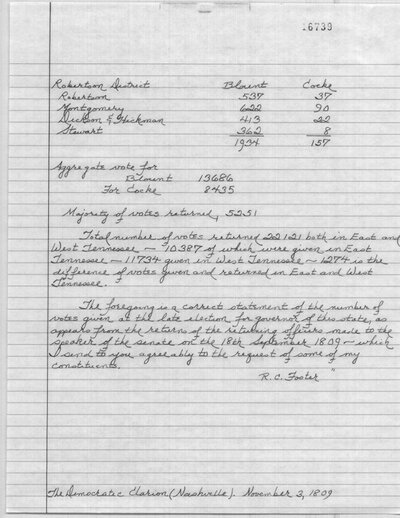 16739
Robertson District Blount Cocke
Robertson 537 37
Montgomery 622 90
Dickson & Hickman 413 22
Stewart 362 8
1934 157
Aggregate vote for
Blount 13686
For Cocke 8435
Majority of votes returned, 5251
Total number of votes returned 22121 both in East and
West Tennessee — 10387 of which were given in East
Tennessee — 11734 given in West Tennessee ~ 1274 is the
difference of votes given and returned in East and West
Tennessee.
The foregoing is a correct statement of the number of
votes given at the late election for governor of this state, as
appears from the returns of the returning officers made to the
speaker of the senate on the 18th September 1809 — which
I send to you agreeably to the request of some of my
constituents.
R. C. Foster "
The Democratic Clarion (Nashville). November 3, 1809